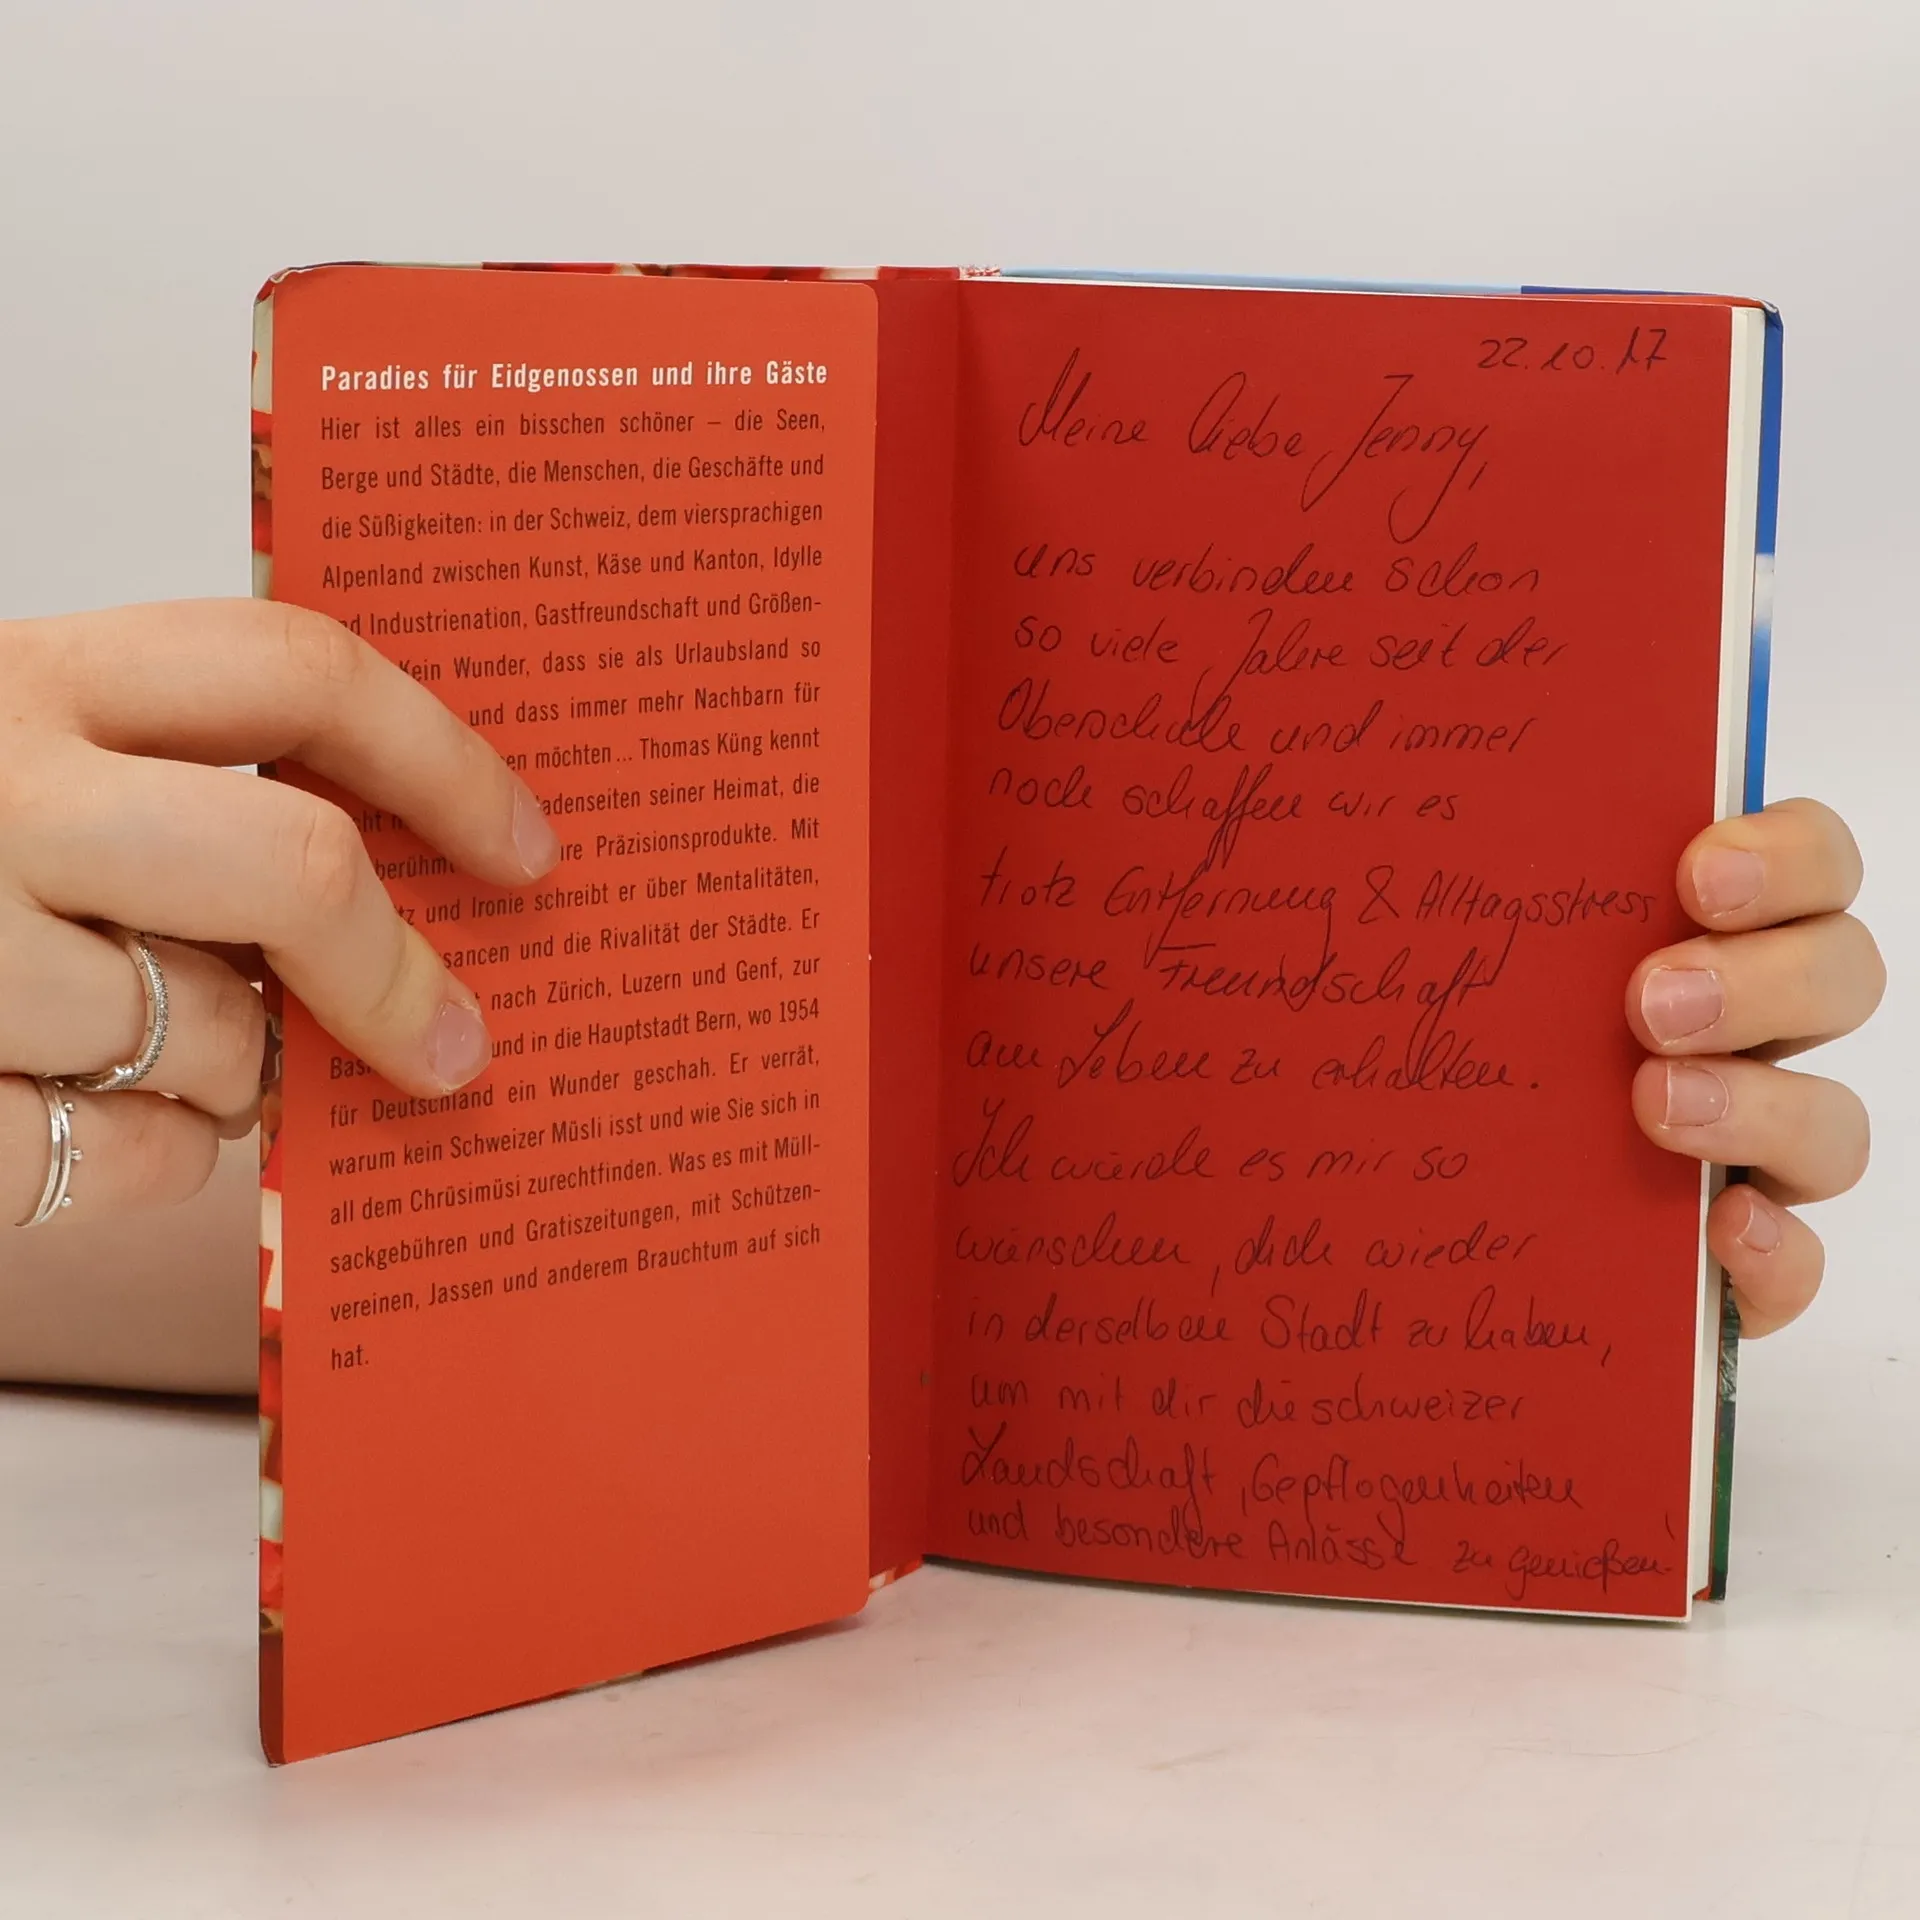 Paradies für Eidgenossen und ihre Gäste
Hier ist alles ein bisschen schöner – die Seen,
Berge und Städte, die Menschen, die Geschäfte und
die Süßigkeiten: in der Schweiz, dem viersprachigen
Alpenland zwischen Kunst, Käse und Kanton, Idylle
Industrienation, Gastfreundschaft und Größen-
Kein Wunder, dass sie als Urlaubsland so
und dass immer mehr Nachbarn für
möchten ... Thomas Küng kennt
seiner Heimat, die
Präzisionsprodukte. Mit
und Ironie schreibt er über Mentalitäten,
und die Rivalität der Städte. Er
nach Zürich, Luzern und Genf, zur
und in die Hauptstadt Bern, wo 1954
für Deutschland ein Wunder geschah. Er verrät,
warum kein Schweizer Müsli isst und wie Sie sich in
all dem Chrüsimüsi zurechtfinden. Was es mit Müll-
sackgebühren und Gratiszeitungen, mit Schützen-
vereinen, Jassen und anderem Brauchtum auf sich
hat.
22.10.17
Meine liebe Jenny,
uns verbinden schon
so viele Jahre seit der
Oberschule und immer
noch schaffen wir es
trotz Entfernung & Alltagsstress
unsere Freundschaft
am Leben zu erhalten.
Ich würde es mir so
wünschen, dich wieder
in derselben Stadt zu haben,
um mit dir die schweizer
Landschaft, Gepflogenheiten
und besondere Anlässe zu genießen!